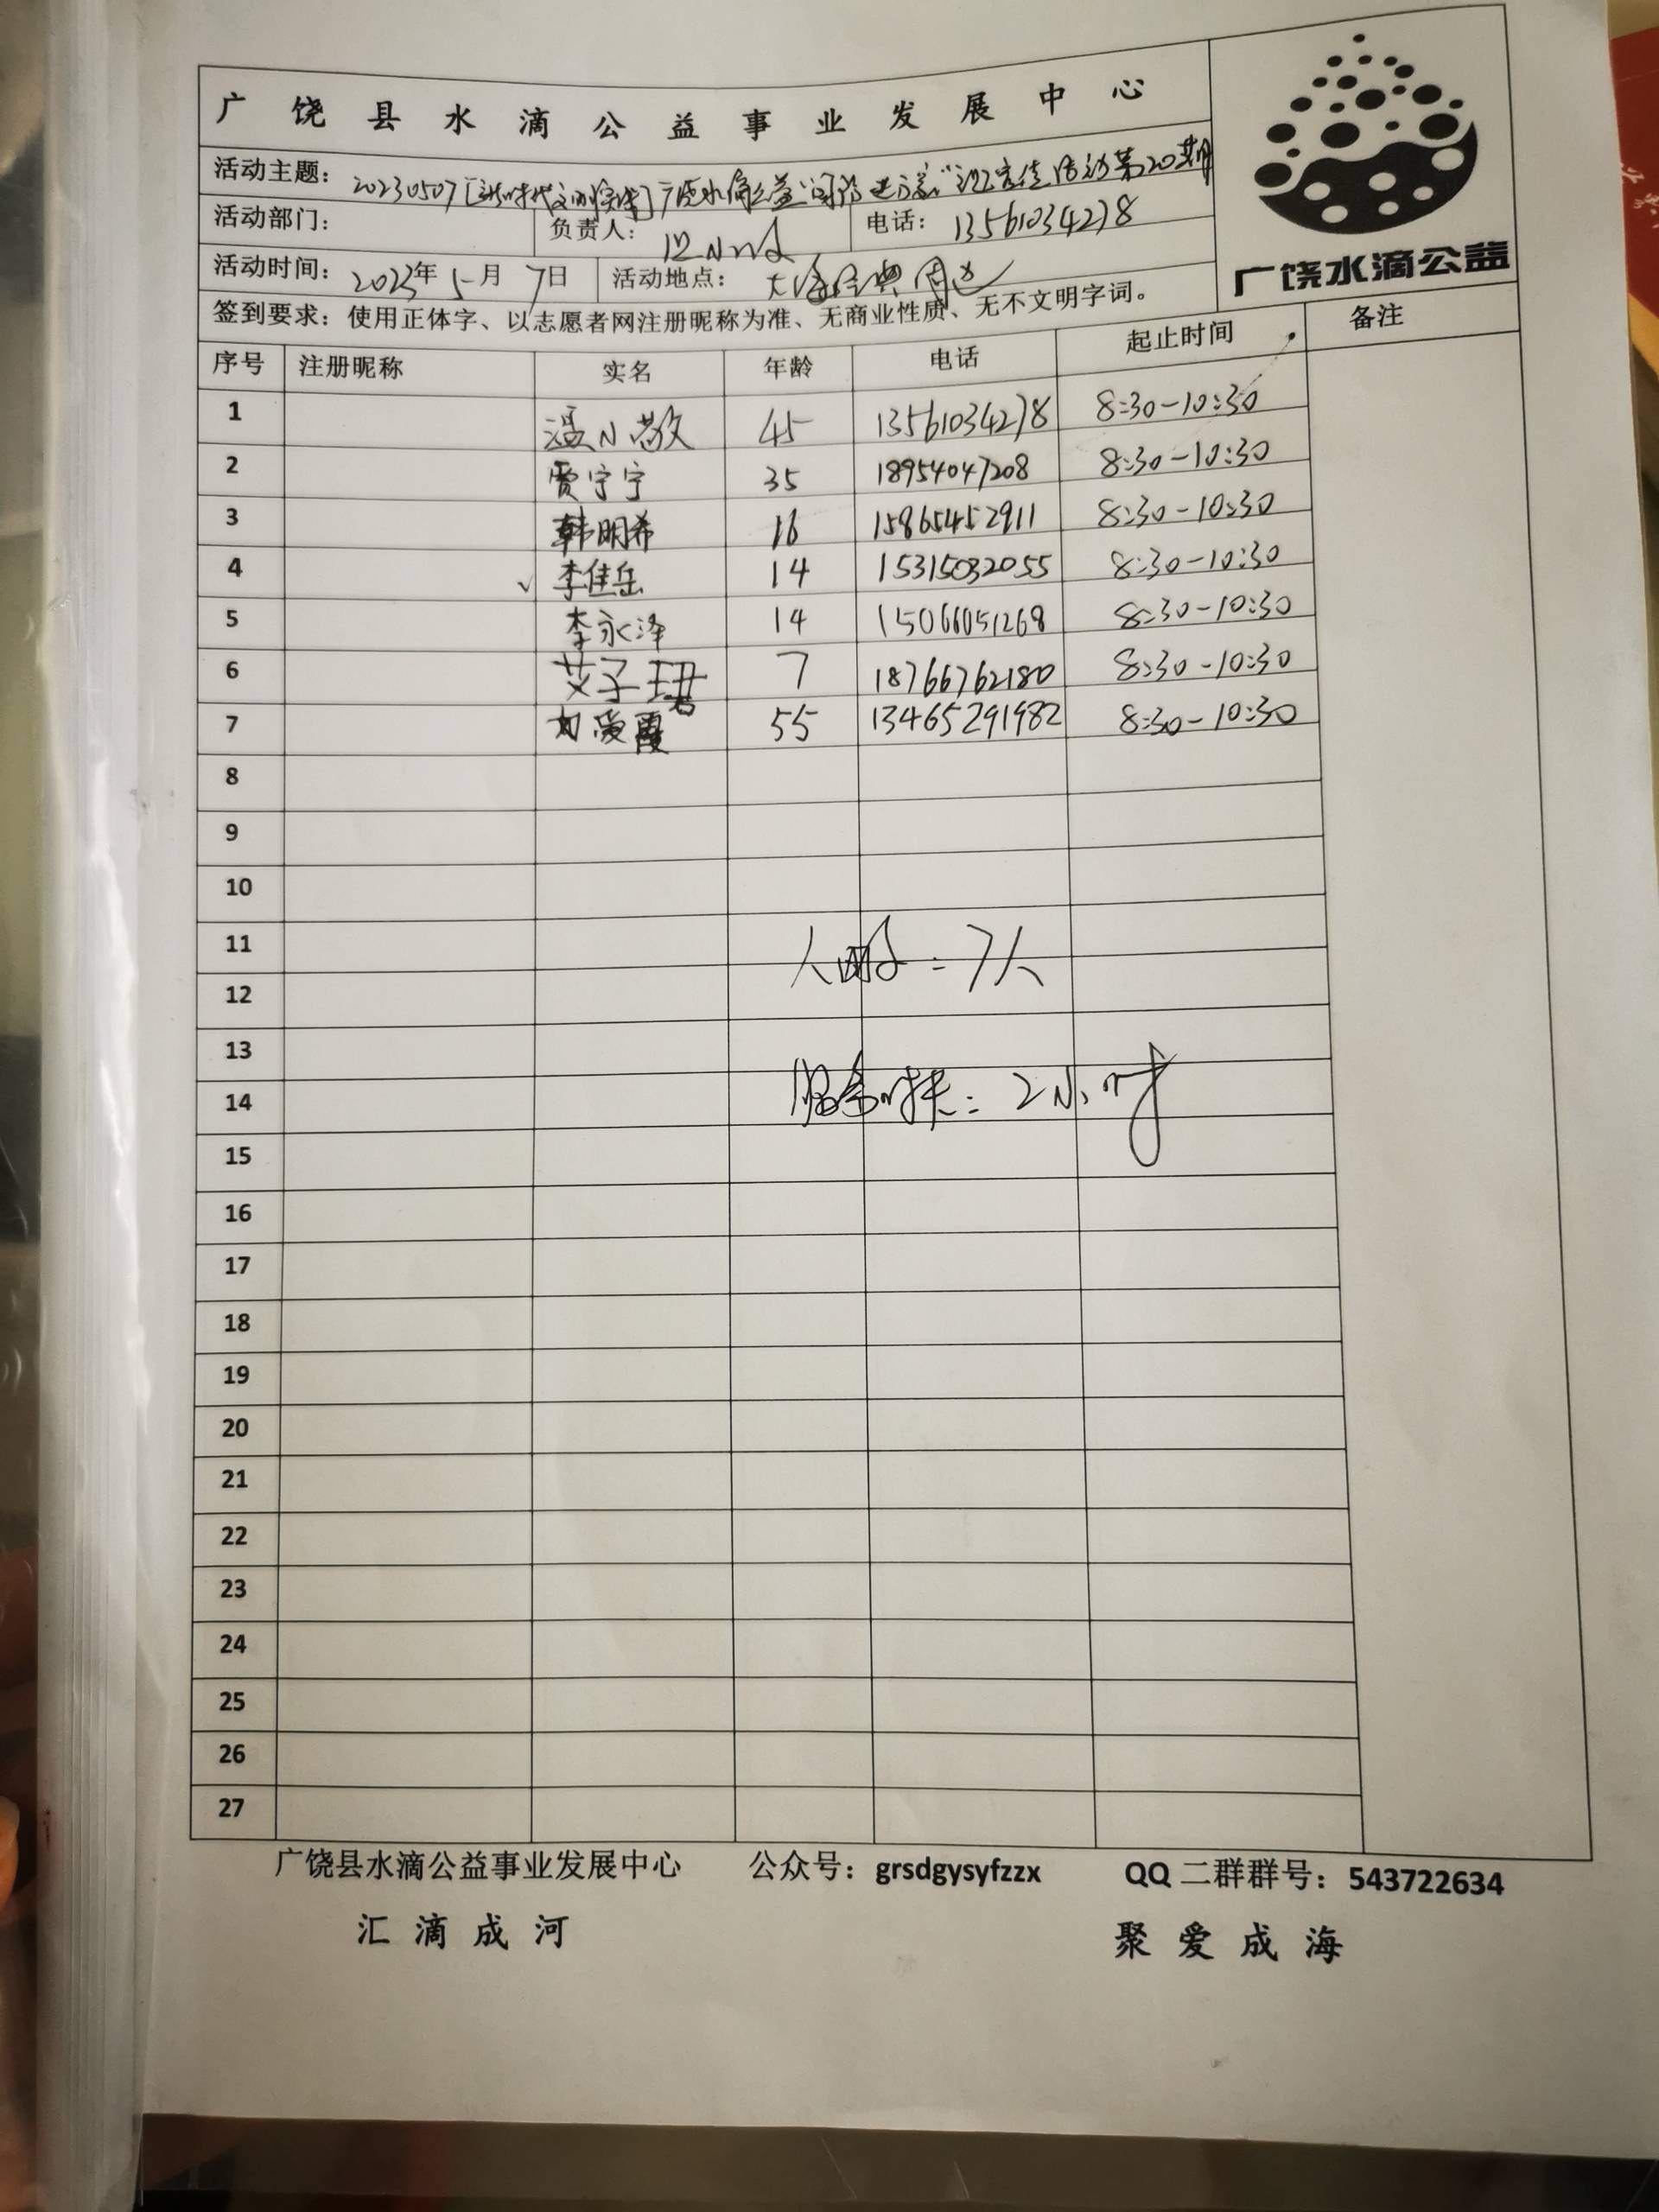 广饶县水滴公益事业发展中心
活动主题：20230507[新时代文明实践]广饶水滴公益"河流活动第20期
广饶水滴公益
活动部门： 负责人： 电话：13561034278
活动时间：2023年5月7日 活动地点：大海经典周边
签到要求：使用正体字、以志愿者网注册昵称为准、无商业性质、无不文明字词。
序号 注册昵称 实名 年龄 电话 起止时间 备注
1 温小敬 45 13561034278 8:30-10:30
2 贾宁宁 35 18954047208 8:30-10:30
3 韩明希 16 15865452911 8:30-10:30
4 √ 李佳岳 14 15315032055 8:30-10:30
5 李永泽 14 15066051268 8:30-10:30
6 艾子珺 7 18766762180 8:30-10:30
7 刘爱霞 55 13465291982 8:30-10:30
8
9
10
11
人数：7人
12
13
14
服务时长：2小时
15
16
17
18
19
20
21
22
23
24
25
26
27
广饶县水滴公益事业发展中心 公众号：grsdgysyfzzx QQ 二群群号：543722634
汇滴成河 聚爱成海